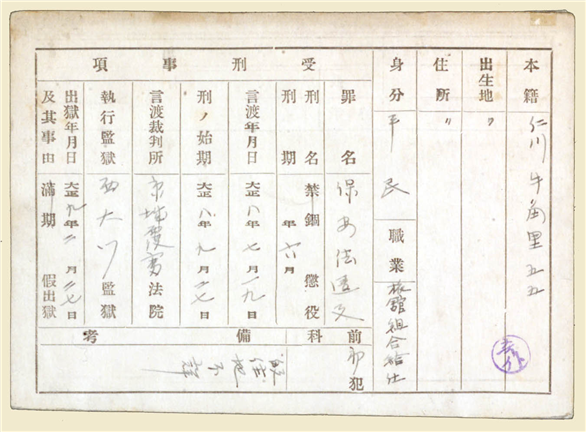 本籍 仁川 牛角里 五五
出生地 〃
住所 〃
身分 平民 職業 旅館組合給仕
受刑事項
罪名 保安法違反
刑名 禁錮 懲役
刑期 年 六月
言渡年月日 大正八年七月一九日
刑ノ始期 大正八年九月二七日
言渡裁判所 京城覆審法院
執行監獄 西大門監獄
出獄年月日及其事由 大正九年二月二七日 満期 假出獄
前科 初犯
備考